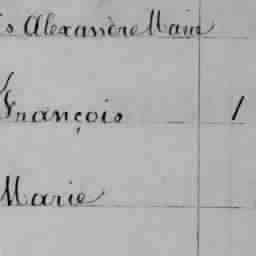 s Alexandre Marie
François 1
Marie